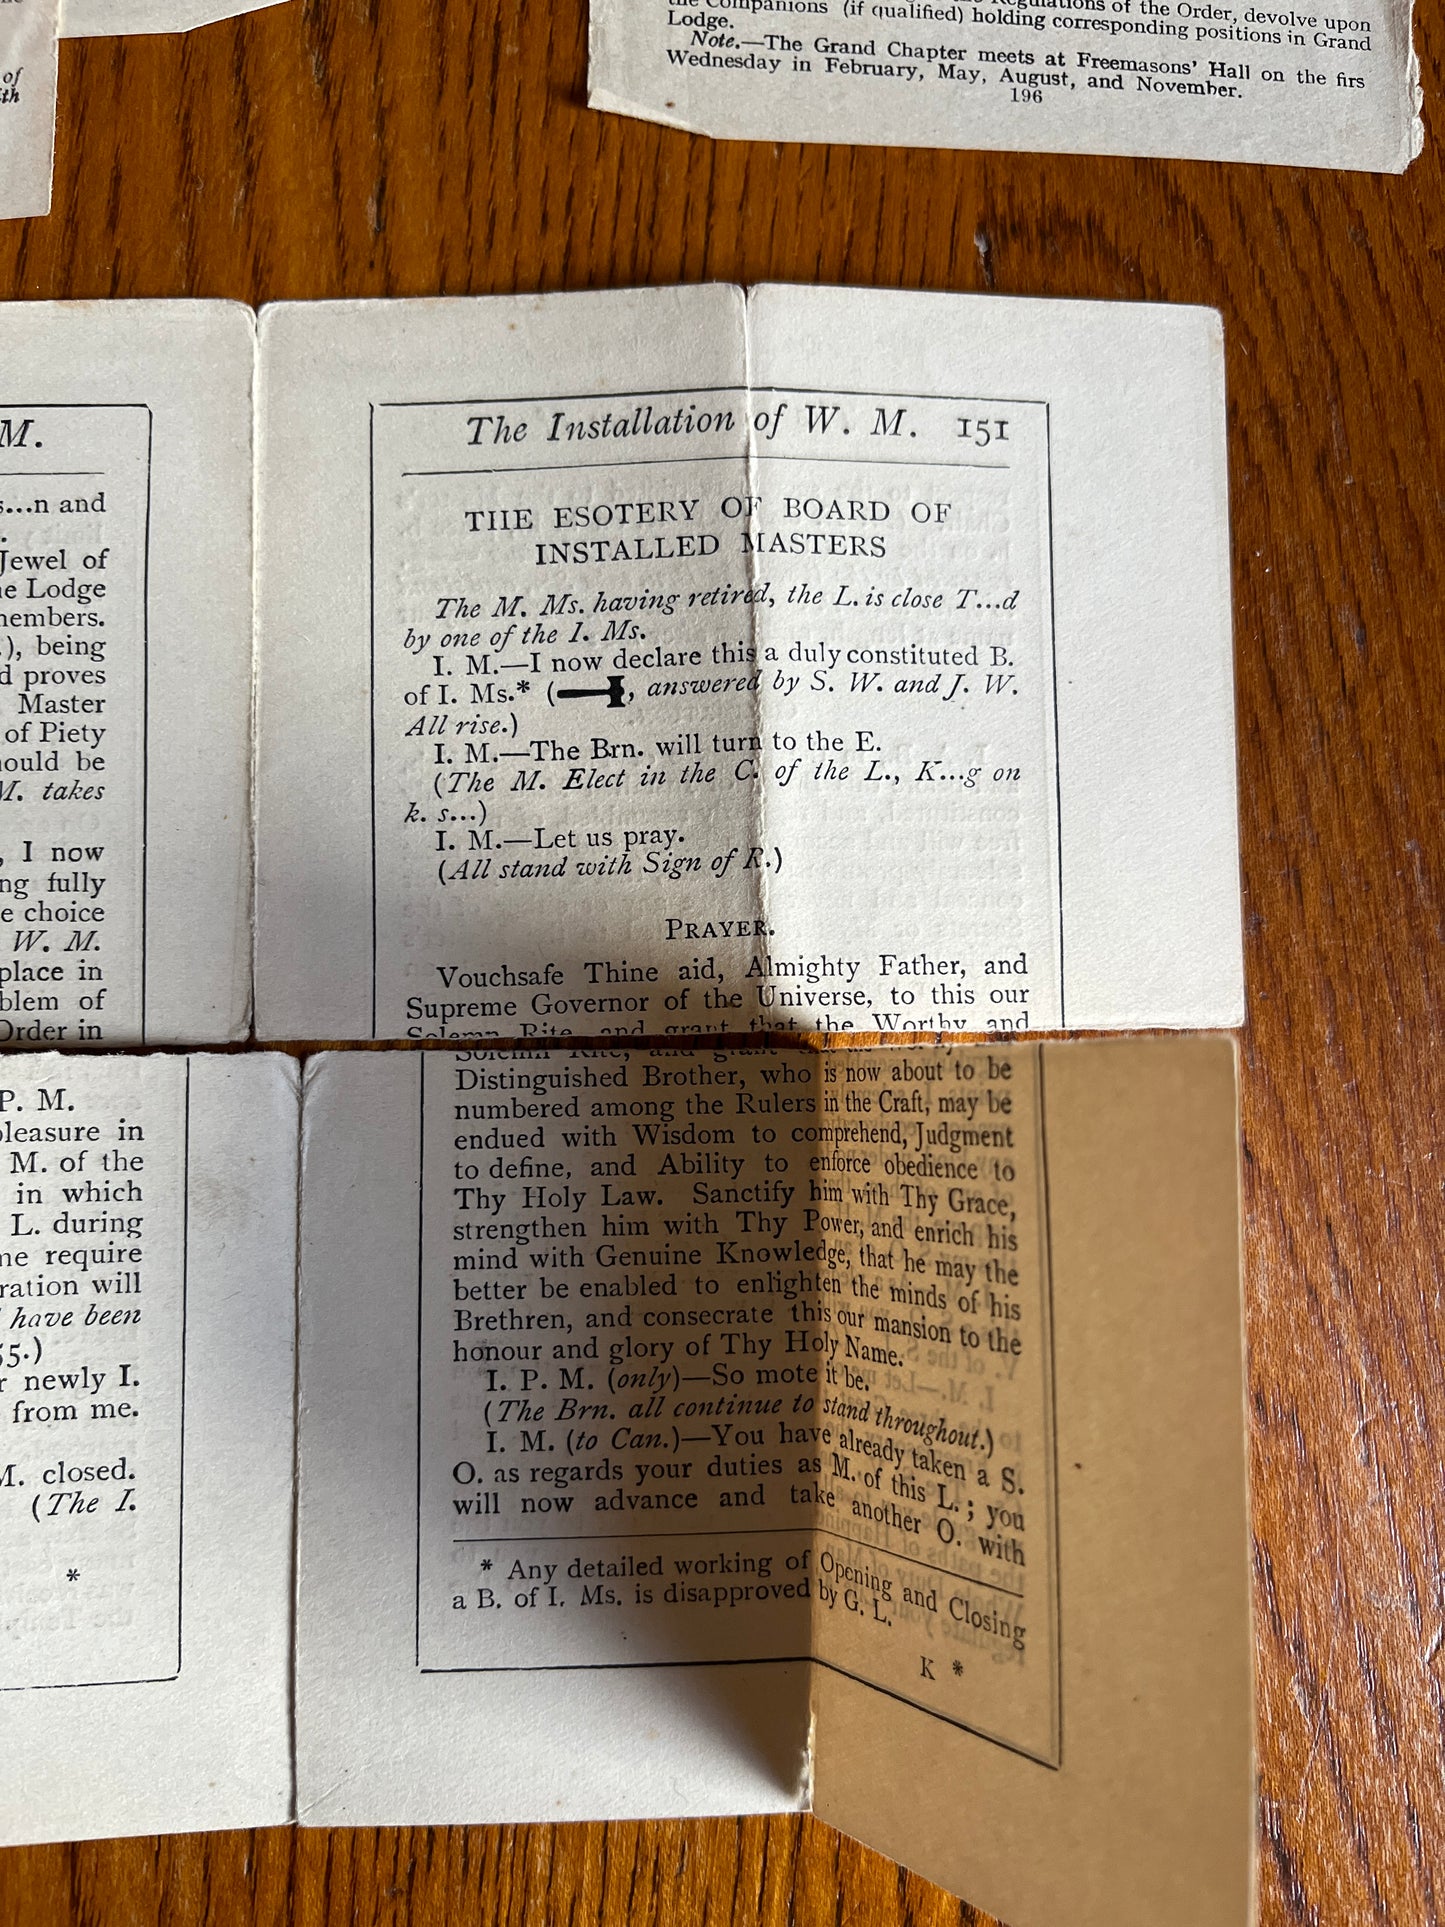 of
ith
Regulations of the Order, devolve upon
the Companions (if qualified) holding corresponding positions in Grand
Lodge.
Note.—The Grand Chapter meets at Freemasons' Hall on the firs
Wednesday in February, May, August, and November.
196
M.
s...n and
Jewel of
e Lodge
nembers.
.), being
d proves
Master
of Piety
ould be
M. takes
, I now
ng fully
e choice
W. M.
place in
blem of
Order in
P. M.
pleasure in
M. of the
in which
L. during
me require
ration will
have been
55.)
r newly I.
from me.
M. closed.
(The I.
*
The Installation of W. M. 151
THE ESOTERY OF BOARD OF
INSTALLED MASTERS
The M. Ms. having retired, the L. is close T...d
by one of the I. Ms.
I. M.—I now declare this a duly constituted B.
of I. Ms.* ( , answered by S. W. and J. W.
All rise.)
I. M.—The Brn. will turn to the E.
(The M. Elect in the C. of the L., K...g on
k. s...)
I. M.—Let us pray.
(All stand with Sign of R.)
PRAYER.
Vouchsafe Thine aid, Almighty Father, and
Supreme Governor of the Universe, to this our
Solemn Rite, and grant that the Worthy and
Distinguished Brother, who is now about to be
numbered among the Rulers in the Craft, may be
endued with Wisdom to comprehend, Judgment
to define, and Ability to enforce obedience to
Thy Holy Law. Sanctify him with Thy Grace,
strengthen him with Thy Power, and enrich his
mind with Genuine Knowledge, that he may the
better be enabled to enlighten the minds of his
Brethren, and consecrate this our mansion to the
honour and glory of Thy Holy Name.
I. P. M. (only)—So mote it be.
(The Brn. all continue to stand throughout.)
I. M. (to Can.)—You have already taken a S.
O. as regards your duties as M. of this L.; you
will now advance and take another O. with
* Any detailed working of Opening and Closing
a B. of I. Ms. is disapproved by G. L.
K *